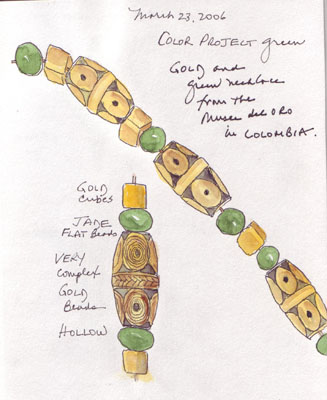 March 23, 2006
COLOR PROJECT green
GOLD and
green necklace
from the
Museo del ORO
in COLOMBIA.
GOLD
cubes
JADE
FLAT Beads
VERY
Complex
GOLD
Beads
HOLLOW